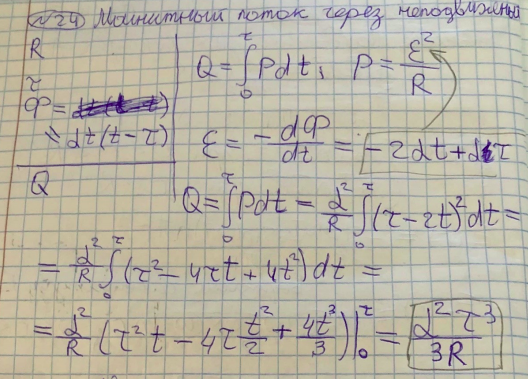 №24 Магнитный поток через неподвижный
R
τ
Φ =
= αt(t − τ)
Q
Q = ∫₀^τ P dt, P = ε²/R
ε = −dΦ/dt = −2αt + ατ
Q = ∫₀^τ P dt = α²/R ∫₀^τ (τ − 2t)² dt =
= α²/R ∫₀^τ (τ² − 4τt + 4t²) dt =
= α²/R (τ²t − 4τ t²/2 + 4t³/3)|₀^τ = α²τ³/3R